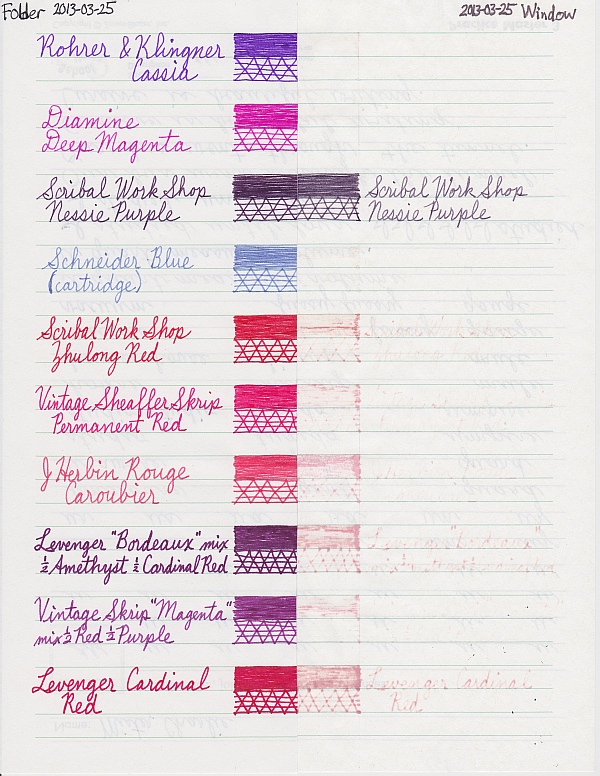 Folder 2013-03-25
2013-03-25 Window
Rohrer & Klingner
Cassia
Diamine
Deep Magenta
Scribal Work Shop
Nessie Purple
Scribal Work Shop
Nessie Purple
Schneider Blue
(cartridge)
Scribal Work Shop
Zhulong Red
Vintage Sheaffer Skrip
Permanent Red
J Herbin Rouge
Caroubier
Levenger "Bordeaux" mix
½ Amethyst ½ Cardinal Red
Levenger "Bordeaux"
Vintage Skrip "Magenta"
mix ½ Red ½ Purple
Levenger Cardinal
Red
Levenger Cardinal
Red